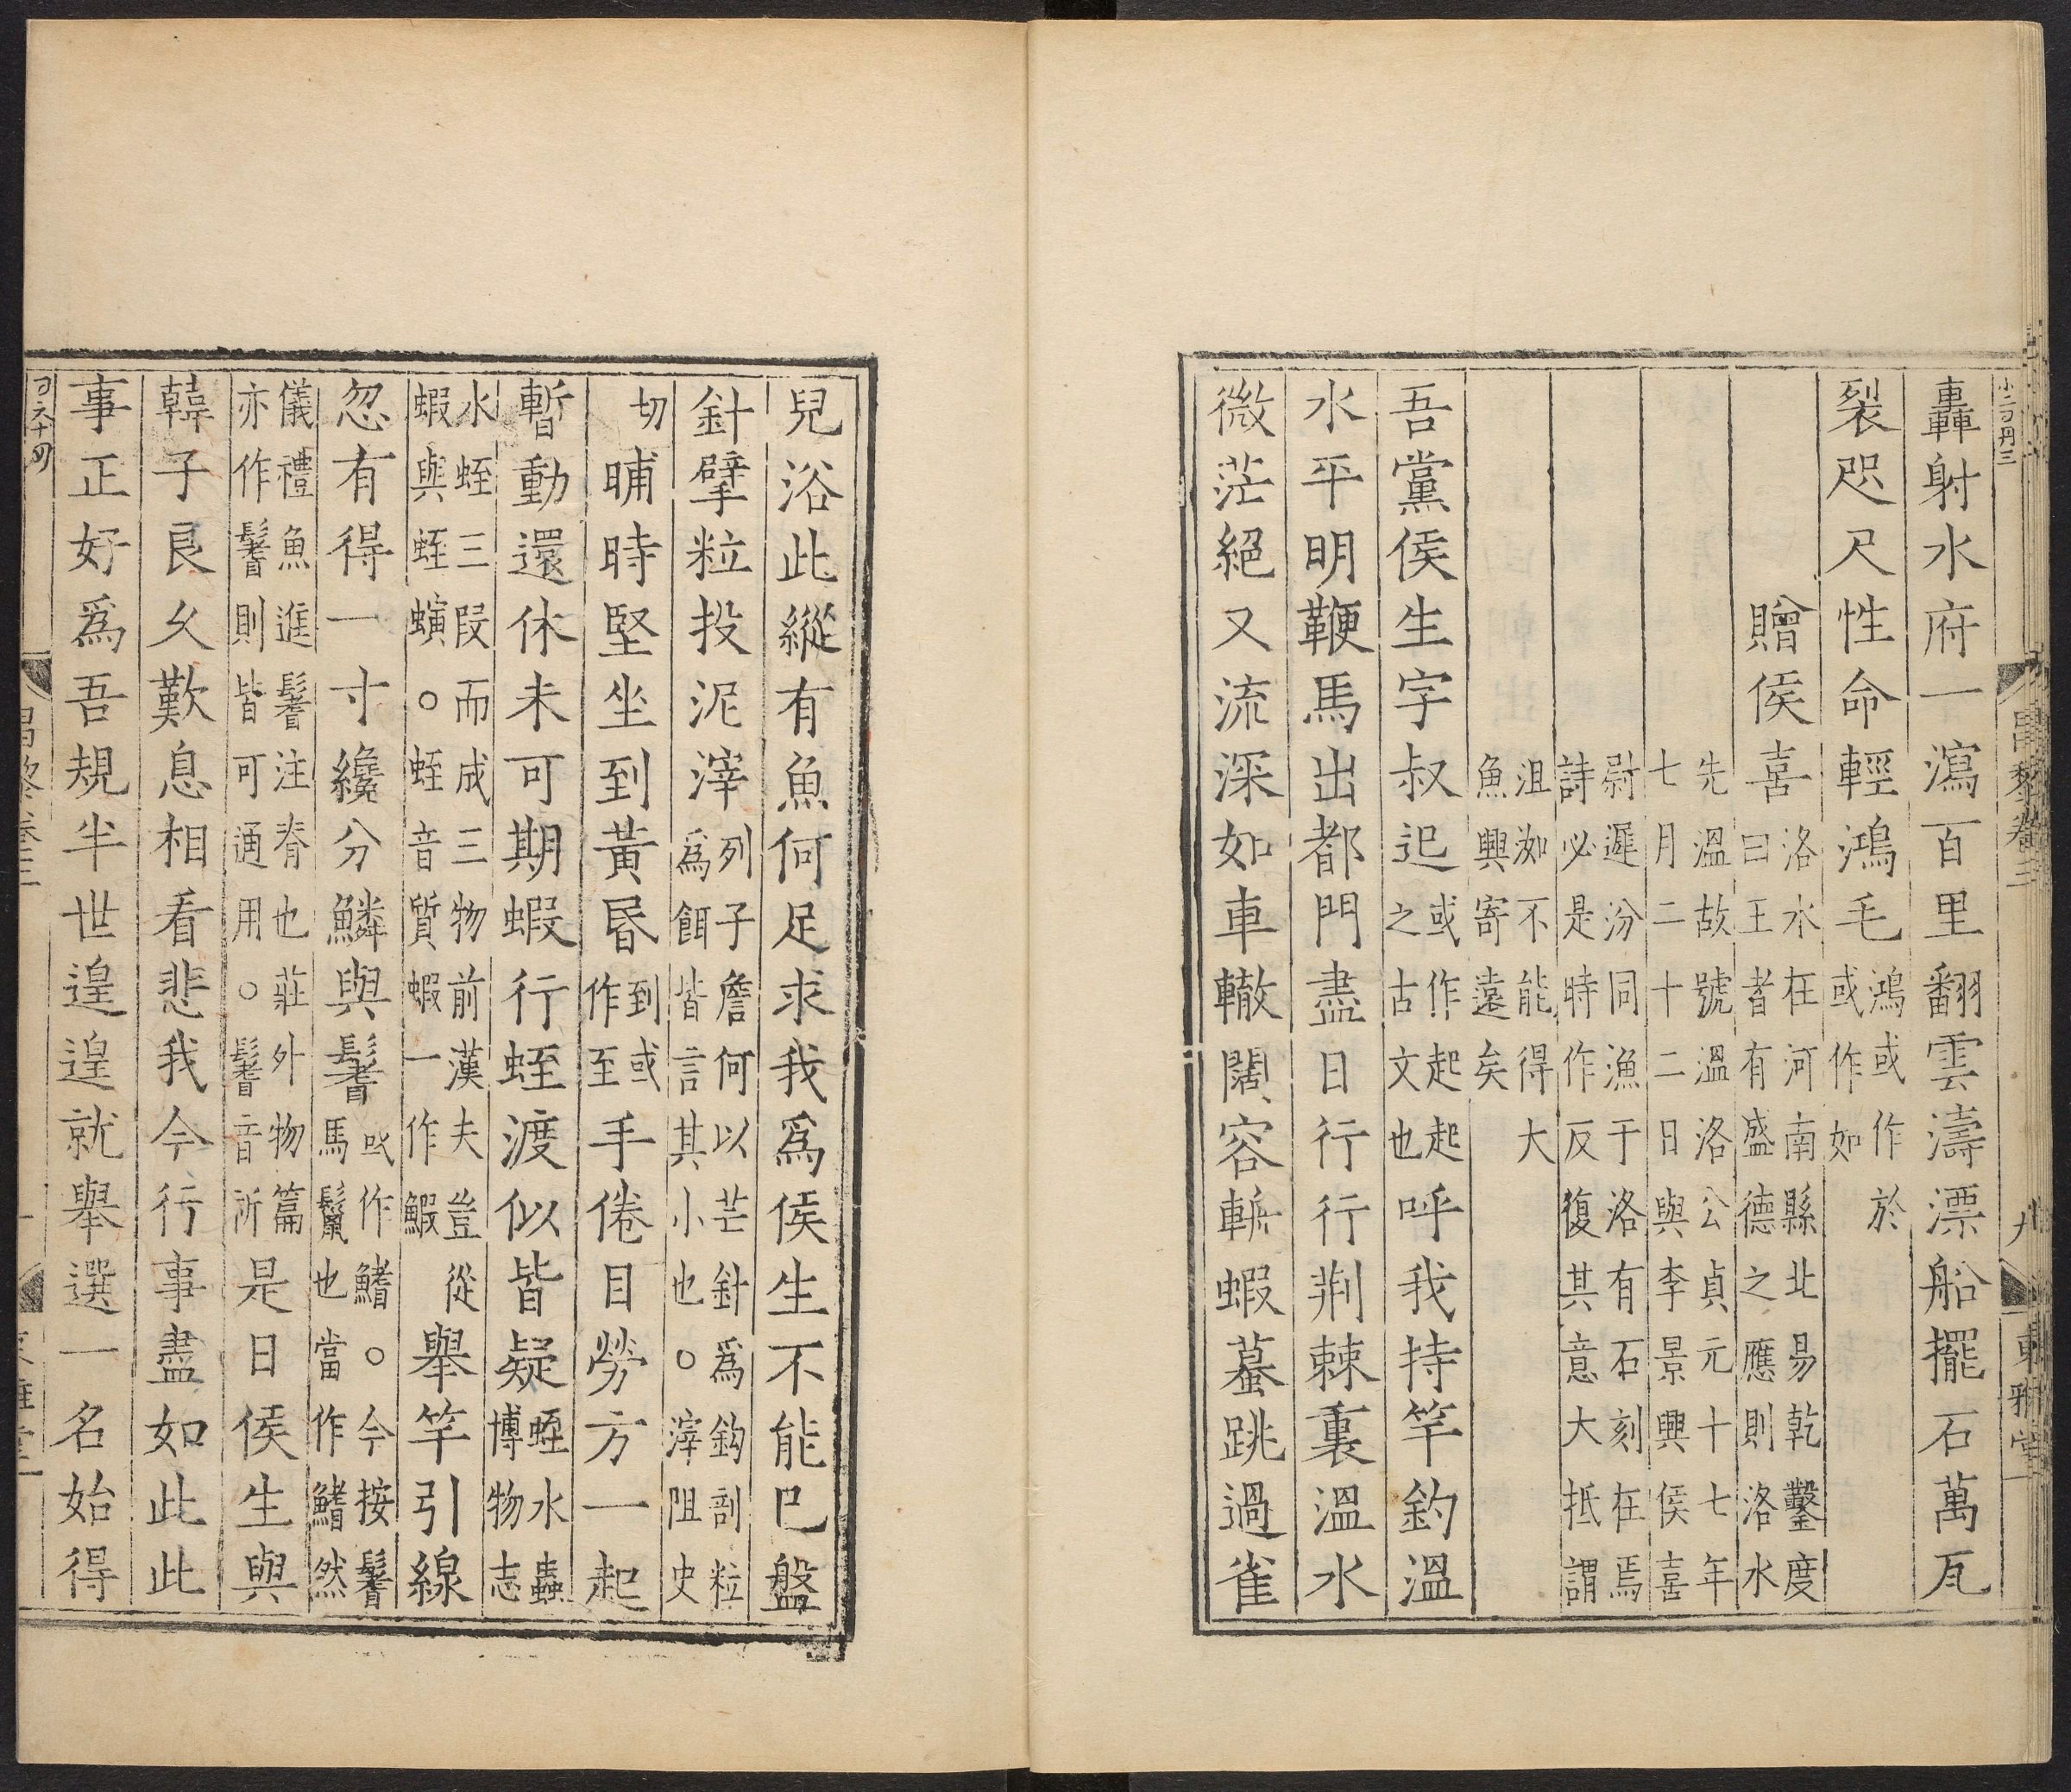 轟射水府一瀉百里翻雲濤漂船擺石萬瓦
裂咫尺性命輕鴻毛鴻或作於或作如
贈侯喜洛水在河南縣北易乾鑿度曰王者有盛德之應則洛水
先溫故號溫洛公貞元十七年七月二十二日與李景興侯喜
尉遲汾同漁于洛有石刻在焉詩必是時作反復其意大抵謂
沮洳不能得大魚興寄遠矣
吾黨侯生字叔𨑔或作起起之古文也呼我持竿釣溫
水平明鞭馬出都門盡日行行荆棘裏溫水
微茫絕又流深如車轍闊容輈蝦蟇跳過雀
兒浴此縱有魚何足求我爲侯生不能已盤
針擘粒投泥滓列子詹何以芒針爲鈎剖粒爲餌皆言其小也○滓阻史
切晡時堅坐到黃昬到或作至手倦目勞方一起
暫動還休未可期蝦行蛭渡似皆疑蛭水蟲博物志
水蛭三段而成三物前漢夫豈從蝦與蛭螾○蛭音質蝦一作鰕舉竿引線
忽有得一寸纔分鱗與鬐或作鰭○今按鬐馬鬣也當作鰭然
儀禮魚進鬐注脊也莊外物篇亦作鬐則皆可通用○鬐音祈是日侯生與
韓子良久歎息相看悲我今行事盡如此此
事正好爲吾規半世遑遑就舉選一名始得
昌黎卷三
九
東雅堂